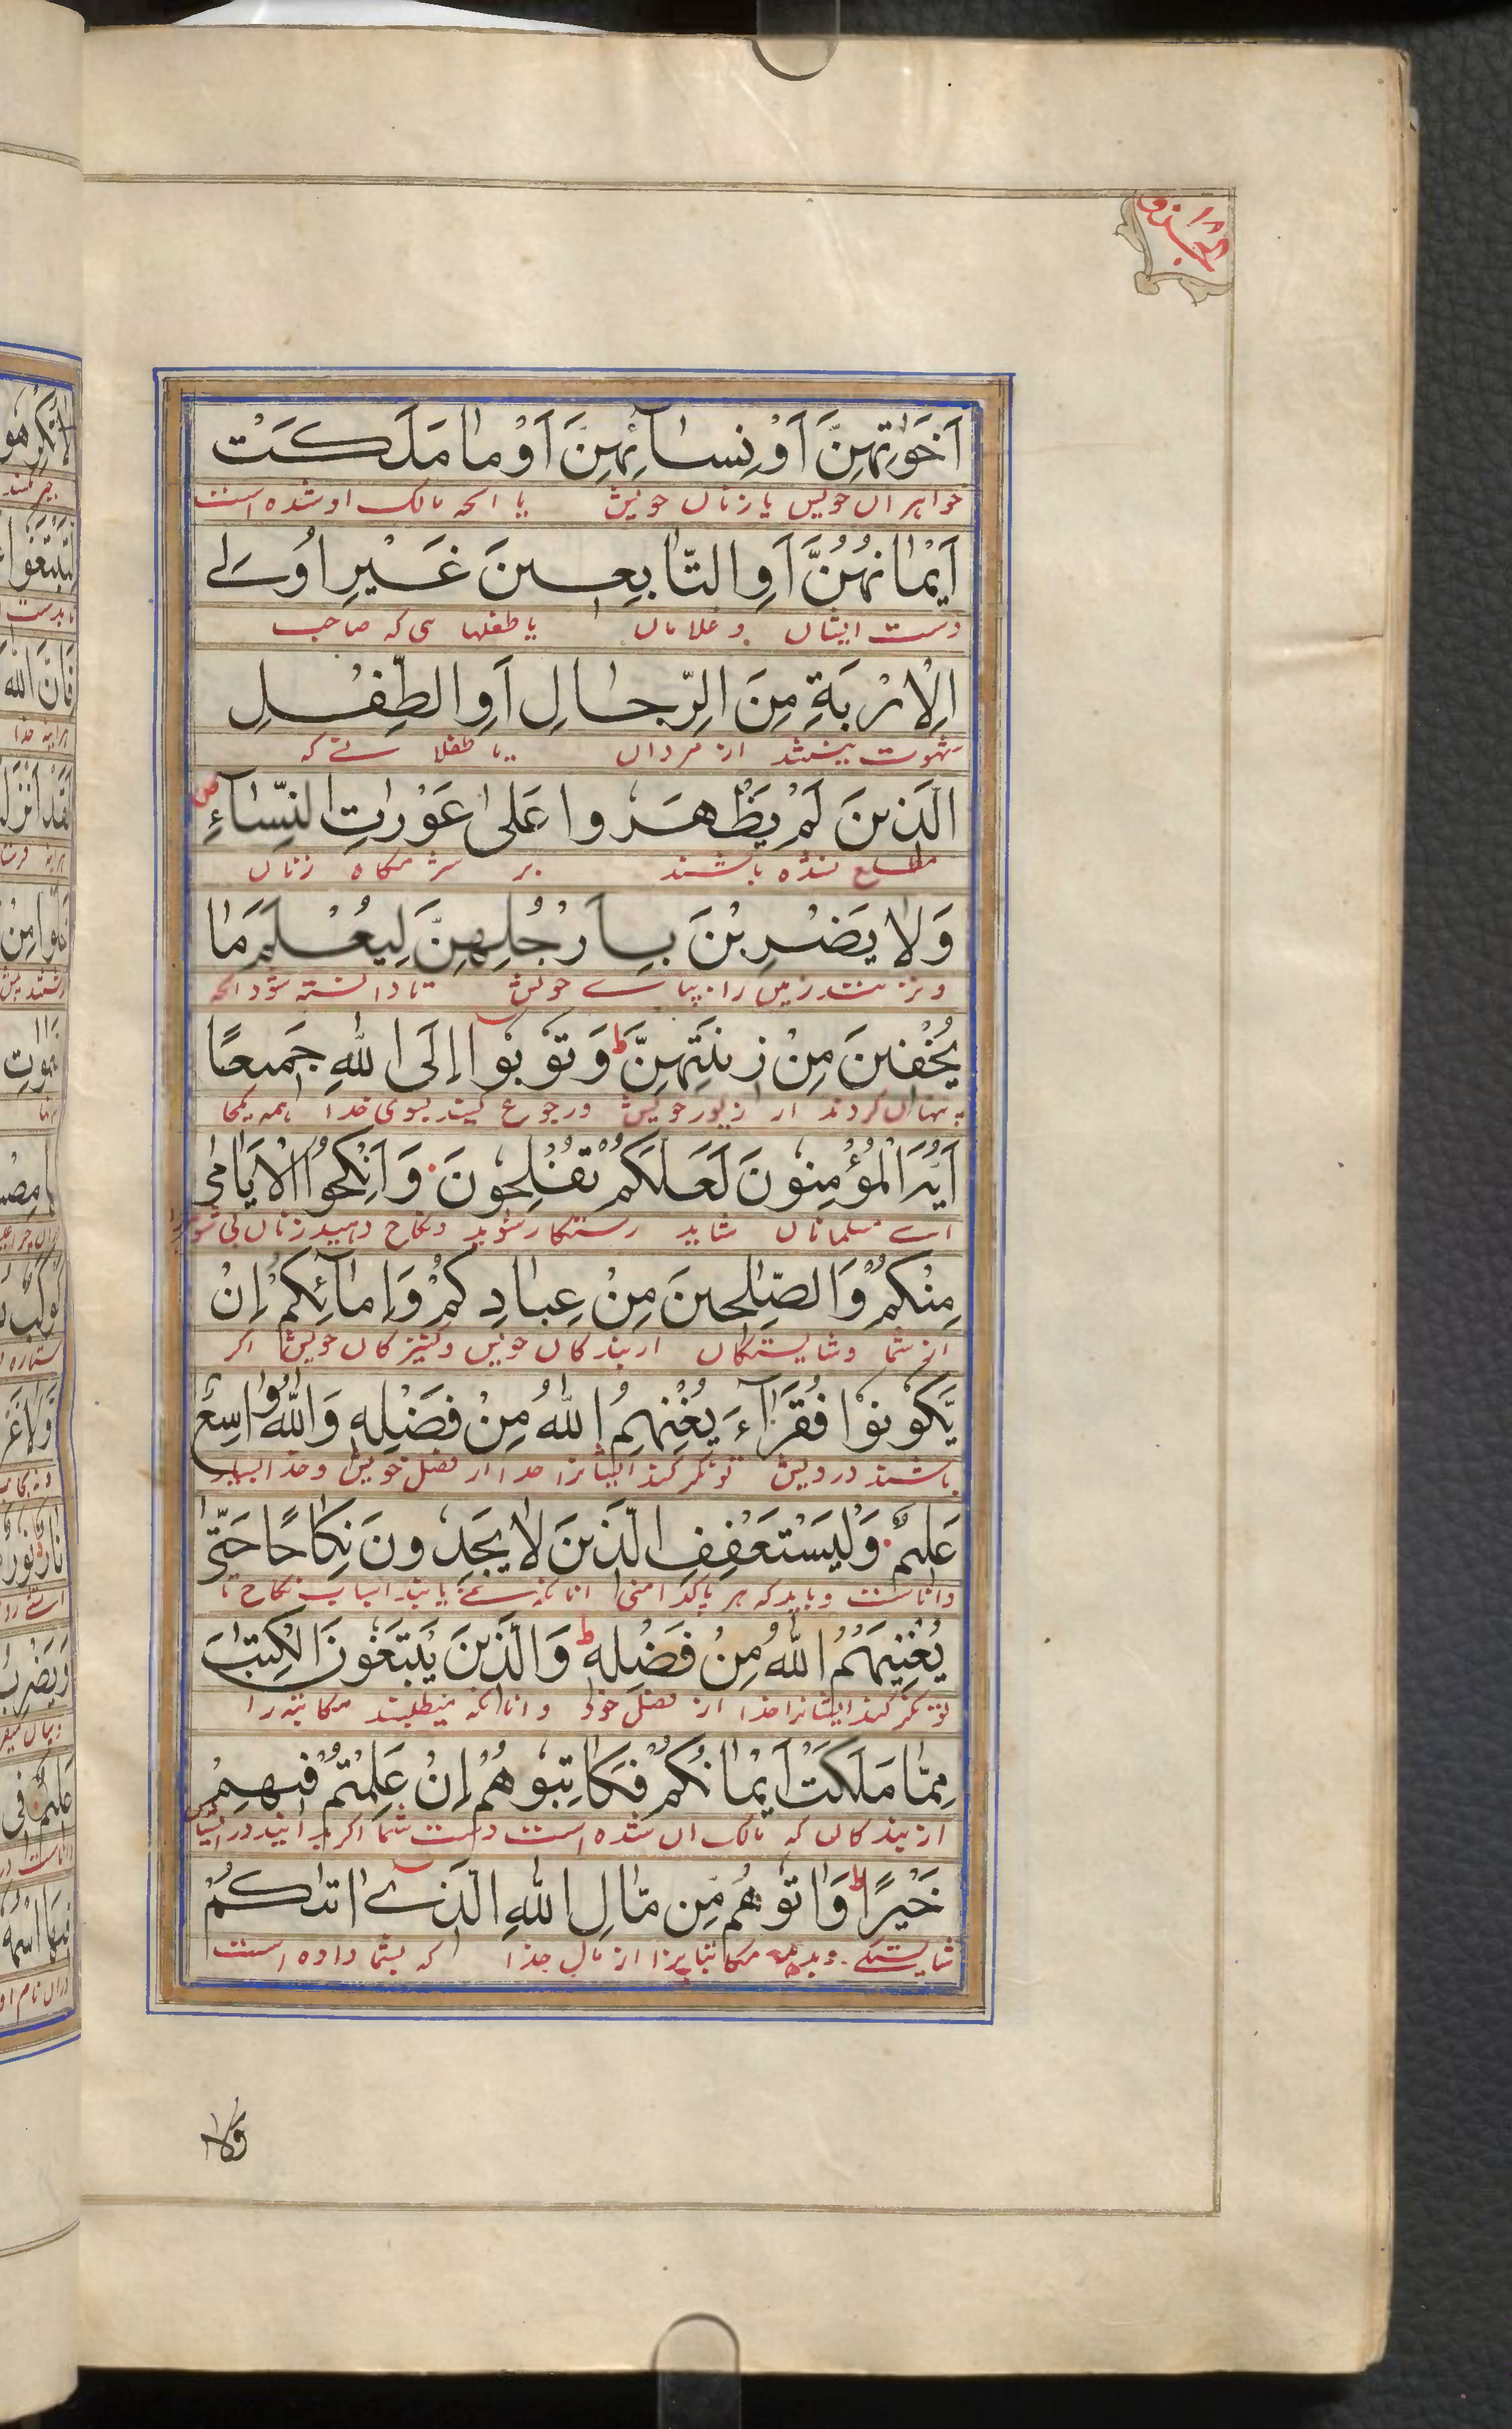 الجزو ١٨
اَخَوٰتِهِنَّ اَوْ نِسَآئِهِنَّ اَوْ مَا مَلَكَتْ
خواهران خویش یا زنان خویش یا انچه مالک او شده است
اَيْمَانُهُنَّ اَوِ التَّابِعِينَ غَيْرِ اُولِے
دست ایشان و غلامان یا طفلها ی که صاحب
الْاِرْبَةِ مِنَ الرِّجَالِ اَوِ الطِّفْلِ
شهوت نیستند از مردان یا طفلا نے که
الَّذِينَ لَمْ يَظْهَرُوا عَلٰى عَوْرَاتِ النِّسَآءِ ص
مطلع نشده باشند بر شرمگاه زنان
وَلَا يَضْرِبْنَ بِاَرْجُلِهِنَّ لِيُعْلَمَ مَا
و نزنند زمین را بپاے خویش تا دانسته شود انچه
يُخْفِينَ مِنْ زِينَتِهِنَّ ط وَتُوْبُوْآ اِلَى اللّٰهِ جَمِيعًا
پنهان کردند از زیور خویش و رجوع کنید بسوی خدا همه یکجا
اَيُّهَ الْمُؤْمِنُونَ لَعَلَّكُمْ تُفْلِحُونَ وَاَنْكِحُوا الْاَيَامٰى
اے مسلمانان شاید رستکار شوید و نکاح دهید زنان بی شوهر را
مِنْكُمْ وَالصّٰلِحِينَ مِنْ عِبَادِكُمْ وَاِمَآئِكُمْ اِنْ
از شما و شایستکان از بندکان خویش و کنیزکان خویش اکر
يَّكُوْنُوْا فُقَرَآءَ يُغْنِهِمُ اللّٰهُ مِنْ فَضْلِهٖ وَاللّٰهُ وَاسِعٌ
باشند درویش تونکر کند ایشانرا خدا از فضل خویش و خدا بسیار
عَلِيمٌ وَلْيَسْتَعْفِفِ الَّذِينَ لَا يَجِدُونَ نِكَاحًا حَتّٰى
داناست و باید که پاکدامنی انانکه نمے یابند اسباب نکاح تا
يُغْنِيَهُمُ اللّٰهُ مِنْ فَضْلِهٖ ط وَالَّذِينَ يَبْتَغُونَ الْكِتٰبَ
تونکر کند ایشانرا خدا از فضل خود و انانکه میطلبند مکاتبه را
مِمَّا مَلَكَتْ اَيْمَانُكُمْ فَكَاتِبُوهُمْ اِنْ عَلِمْتُمْ فِيهِمْ
از بندکان که مالک ان شده است دست شما اکر دانید در ایشان
خَيْرًا ط وَّاٰتُوهُمْ مِّنْ مَّالِ اللّٰهِ الَّذِےٓ اٰتٰىكُمْ
شایستکے و بدهید مکاتبانرا از مال خدا که بشما داده است
وَلَا